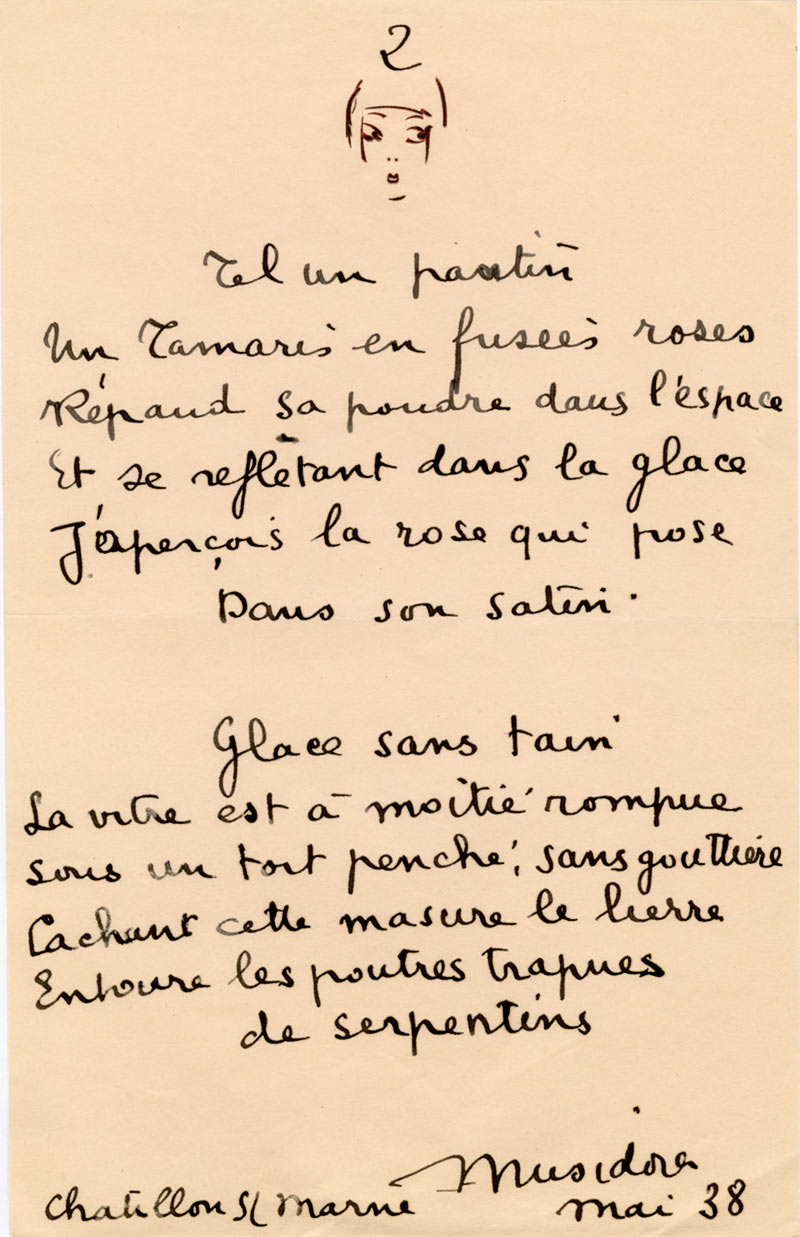 2
Tel un pantin
Un Tamaris en fusées roses
Répand sa poudre dans l'éspace
Et se reflètant dans la glace
J'aperçois la rose qui pose
Dans son satin.
Glace sans tain
La vitre est à moitié rompue
sous un toit penché, sans gouttière
Cachant cette masure le lierre
Entoure les poutres trapues
de serpentins
Musidora
Chatillon s/ Marne mai 38